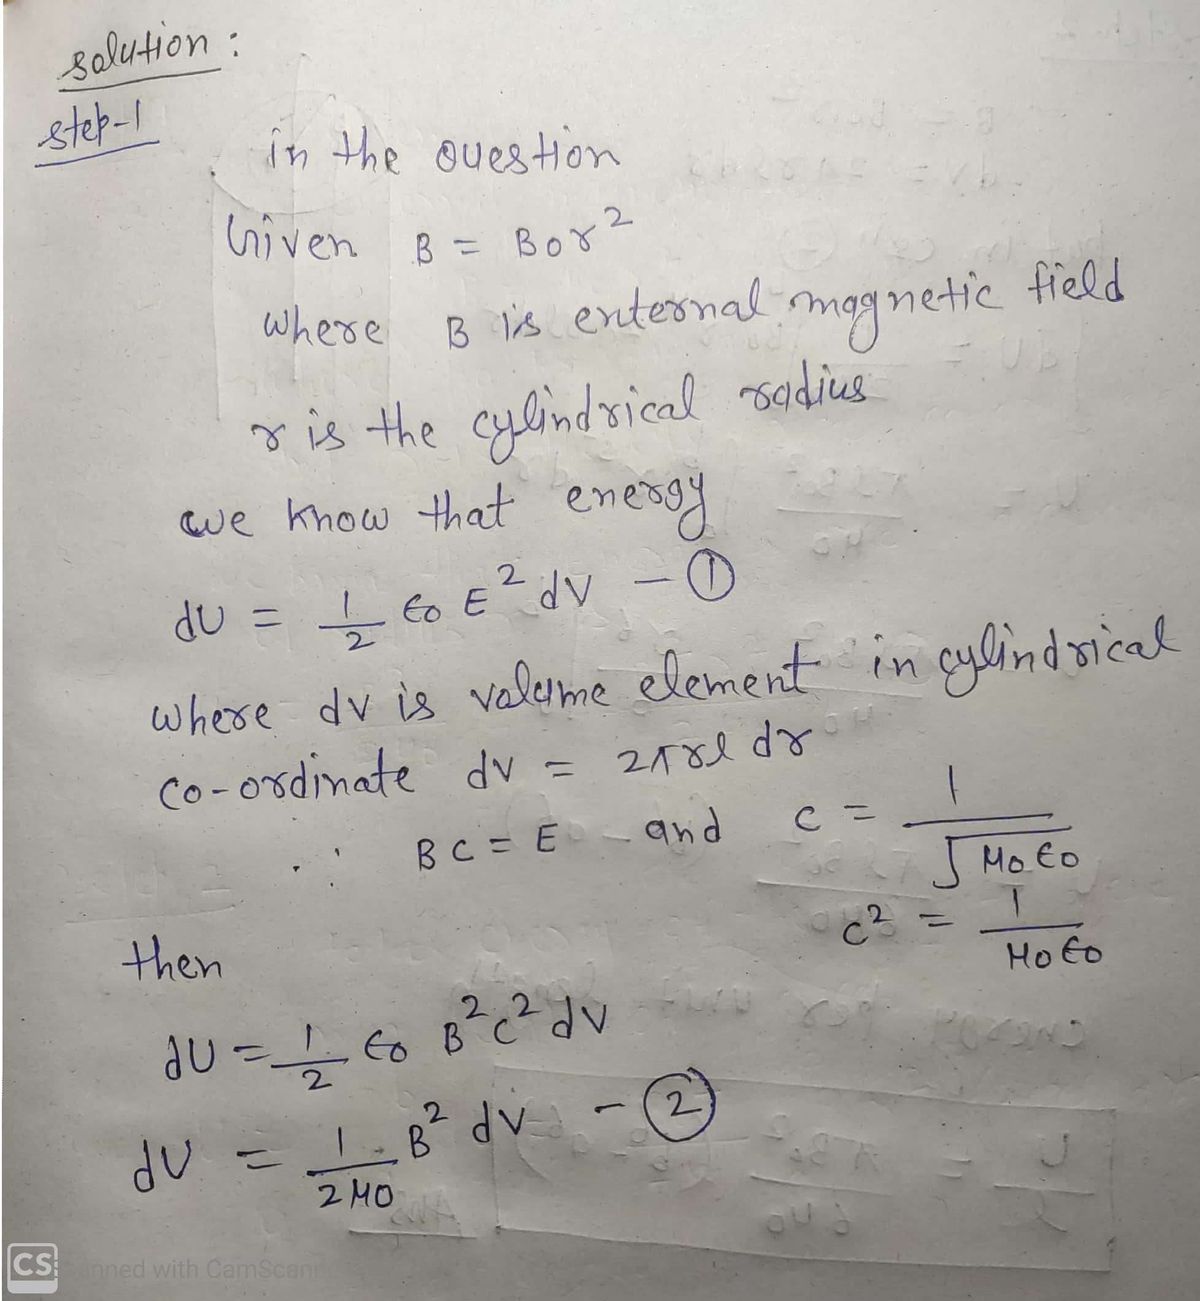 solution :
step-1
in the question
Given B = B0r²
where B is external magnetic field
r is the cylindrical radius
we know that energy
dU = 1/2 ε0 E² dV - ①
where dv is volume element in cylindrical
co-ordinate dv = 2πrl dr
∵ BC = E and c = 1/√μ0ε0
c² = 1/μ0ε0
then
dU = 1/2 ε0 B²c² dV
dU = 1/2μ0 B² dV - ②
CS Scanned with CamScanner